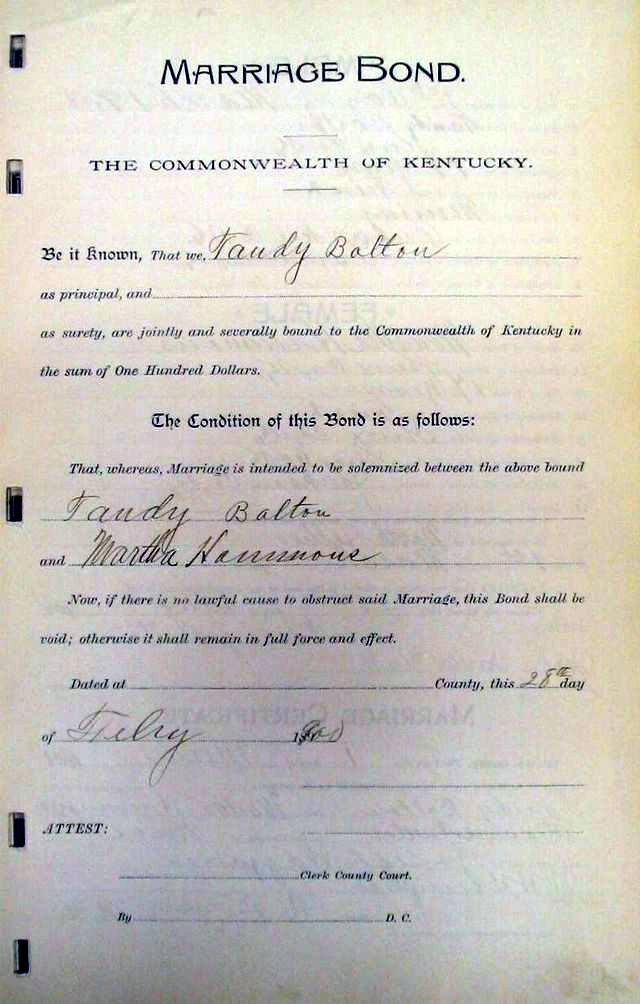 MARRIAGE BOND.
THE COMMONWEALTH OF KENTUCKY.
Be it Known, That we, Tandy Bolton
as principal, and
as surety, are jointly and severally bound to the Commonwealth of Kentucky in
the sum of One Hundred Dollars.
The Condition of this Bond is as follows:
That, whereas, Marriage is intended to be solemnized between the above bound
Tandy Bolton
and Martha Hammons
Now, if there is no lawful cause to obstruct said Marriage, this Bond shall be
void; otherwise it shall remain in full force and effect.
Dated at County, this 28th day
of Feby 1900
ATTEST:
Clerk County Court.
By D. C.